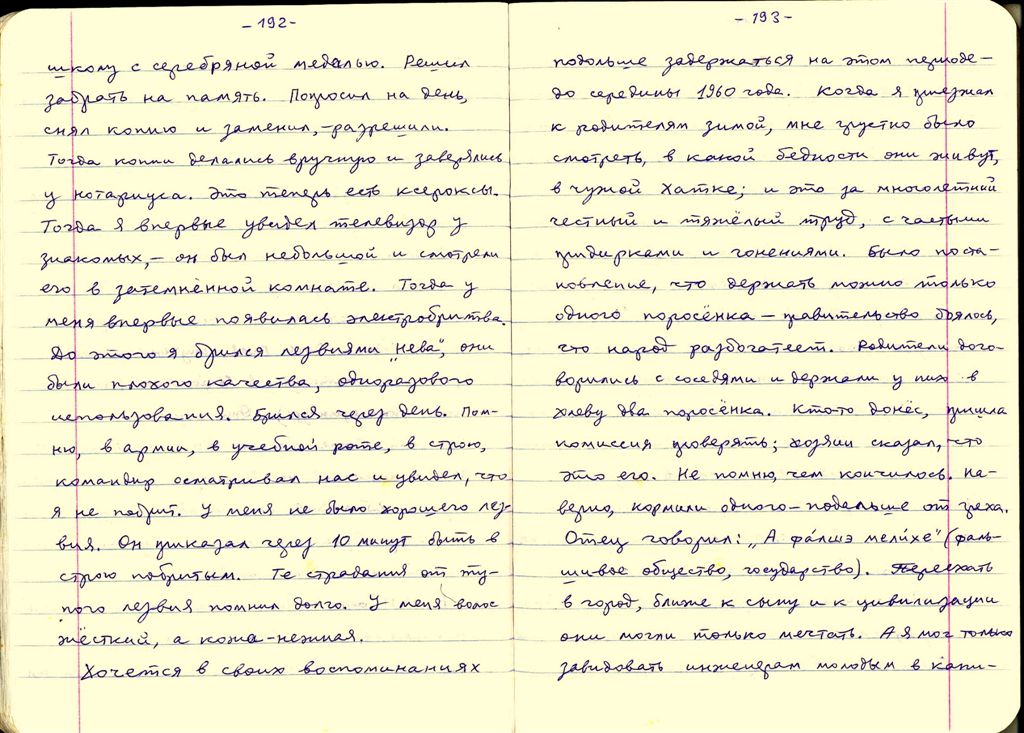 -192-
школу с серебряной медалью. Решил
забрать на память. Попросил на день,
снял копию и заменил, - разрешили.
Тогда копии делались вручную и заверялись
у нотариуса. Это теперь есть ксероксы.
Тогда я впервые увидел телевизор у
знакомых, - он был небольшой и смотрели
его в затемнённой комнате. Тогда у
меня впервые появилась электробритва.
До этого я брился лезвиями „Нева", они
были плохого качества, одноразового
использования. Брился через день. Пом-
ню, в армии, в учебной роте, в строю,
командир осматривал нас и увидел, что
я не побрит. У меня не было хорошего лез-
вия. Он приказал через 10 минут быть в
строю побритым. Те страдания от ту-
пого лезвия помнил долго. У меня волос
жёсткий, а кожа - нежная.
Хочется в своих воспоминаниях
-193-
подольше задержаться на этом периоде -
до середины 1960 года. Когда я приезжал
к родителям зимой, мне грустно было
смотреть, в какой бедности они живут,
в чужой хатке; и это за многолетний
честный и тяжёлый труд, с частыми
придирками и гонениями. Было поста-
новление, что держать можно только
одного поросёнка - правительство боялось,
что народ разбогатеет. Родители дого-
ворились с соседями и держали у них в
хлеву два поросёнка. Кто-то донёс, пришла
комиссия проверять; хозяин сказал, что
это его. Не помню, чем кончилось. На-
верно, кормили одного - подальше от греха.
Отец говорил: „А фа́лшэ мелу́хе" (фаль-
шивое общество, государство). Переехать
в город, ближе к сыну и к цивилизации
они могли только мечтать. А я мог только
завидовать инженерам молодым в капи-